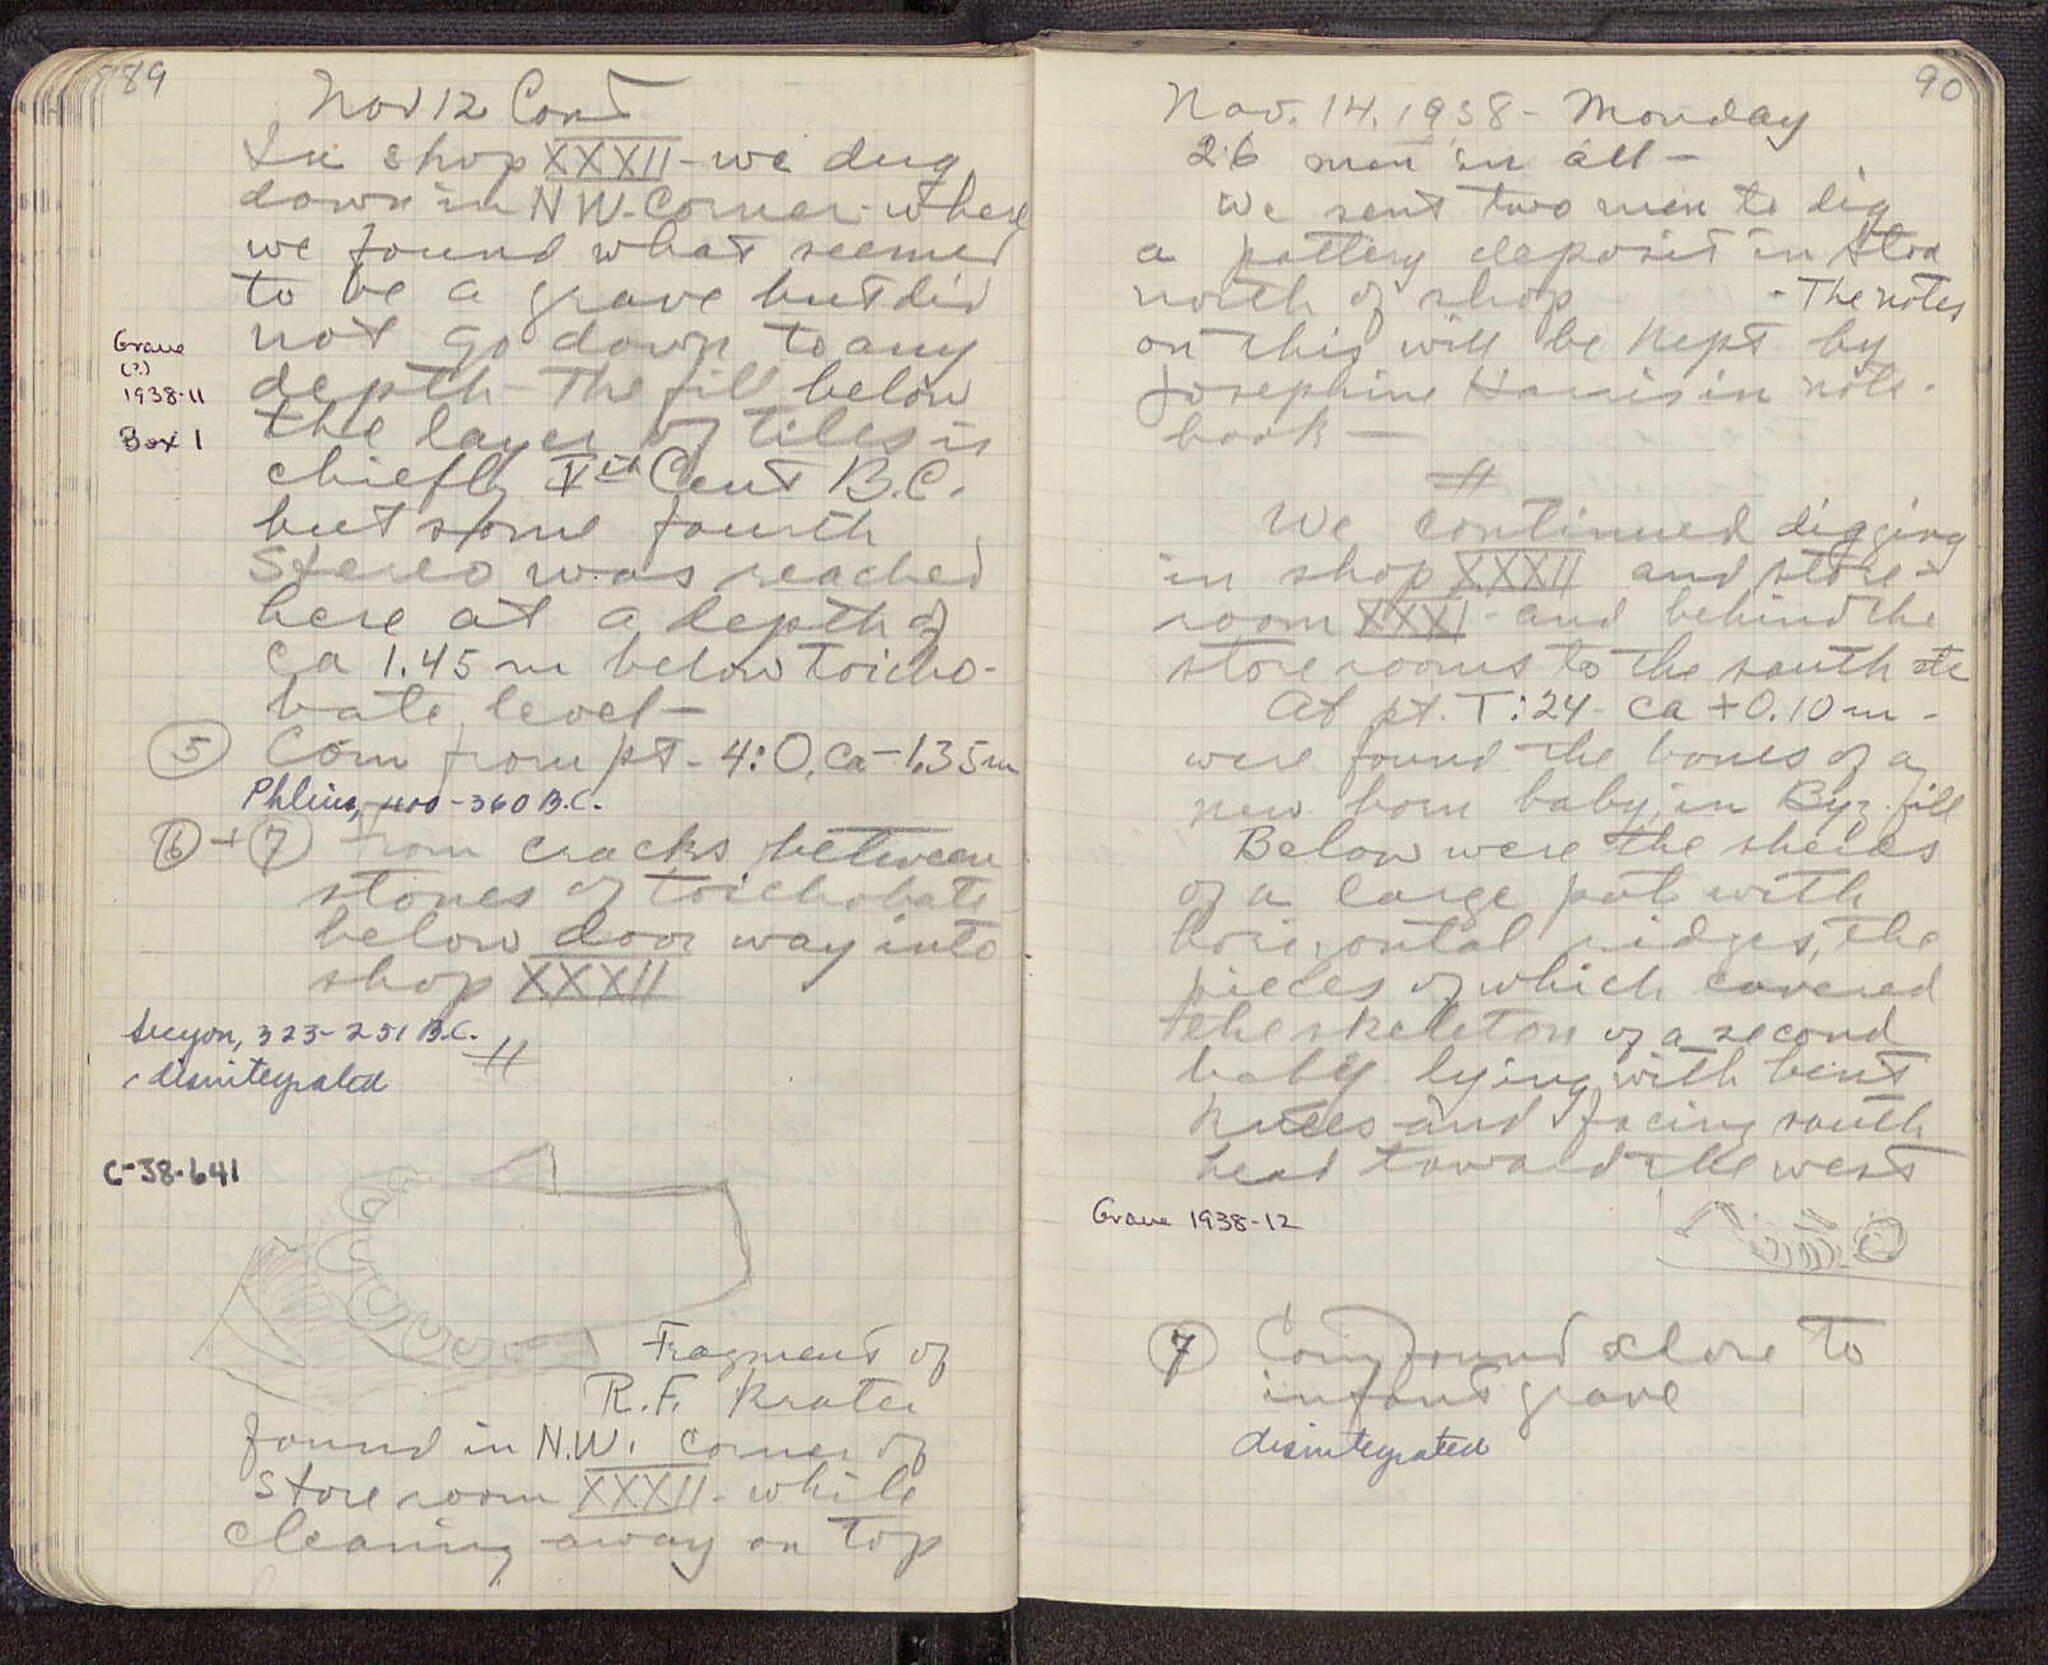 89
Nov 12 Cont
In shop XXXII - we dug
down in NW. Corner - where
we found what seemed
to be a grave but did
not go down to any
depth - The fill below
the layer of tiles is
chiefly Vth Cent B.C.
but some fourth
Stereo was reached
here at a depth of
ca 1.45 m below toicho-
bate level -
Grave
(?)
1938-11
Box 1
5 Coin from pt - 4:O, ca - 1.35 m
Phlius, 400-360 B.C.
6 + 7 from cracks between
stones of toichobate
below door way into
shop XXXII
Sicyon, 323-251 B.C.
disintegrated
C-38-641
Fragment of
R.F. Krater
found in N.W. corner of
store room XXXII - while
cleaning away on top
90
Nov. 14, 1938 - Monday
26 men in all -
We sent two men to dig
a pottery deposit in Stoa
north of shop - The notes
on this will be kept by
Josephine Harris in note-
book -
We continued digging
in shop XXXII and store-
room XXXI - and behind the
store rooms to the south etc
At pt. T:24 - ca +0.10 m -
were found the bones of a
new born baby, in Byz. fill
Below were the sherds
of a large pot with
horizontal ridges, the
pieces of which covered
the skeleton of a second
baby lying with bent
knees and facing south
head toward the west
Grave 1938-12
7 Coin found close to
infant grave
disintegrated